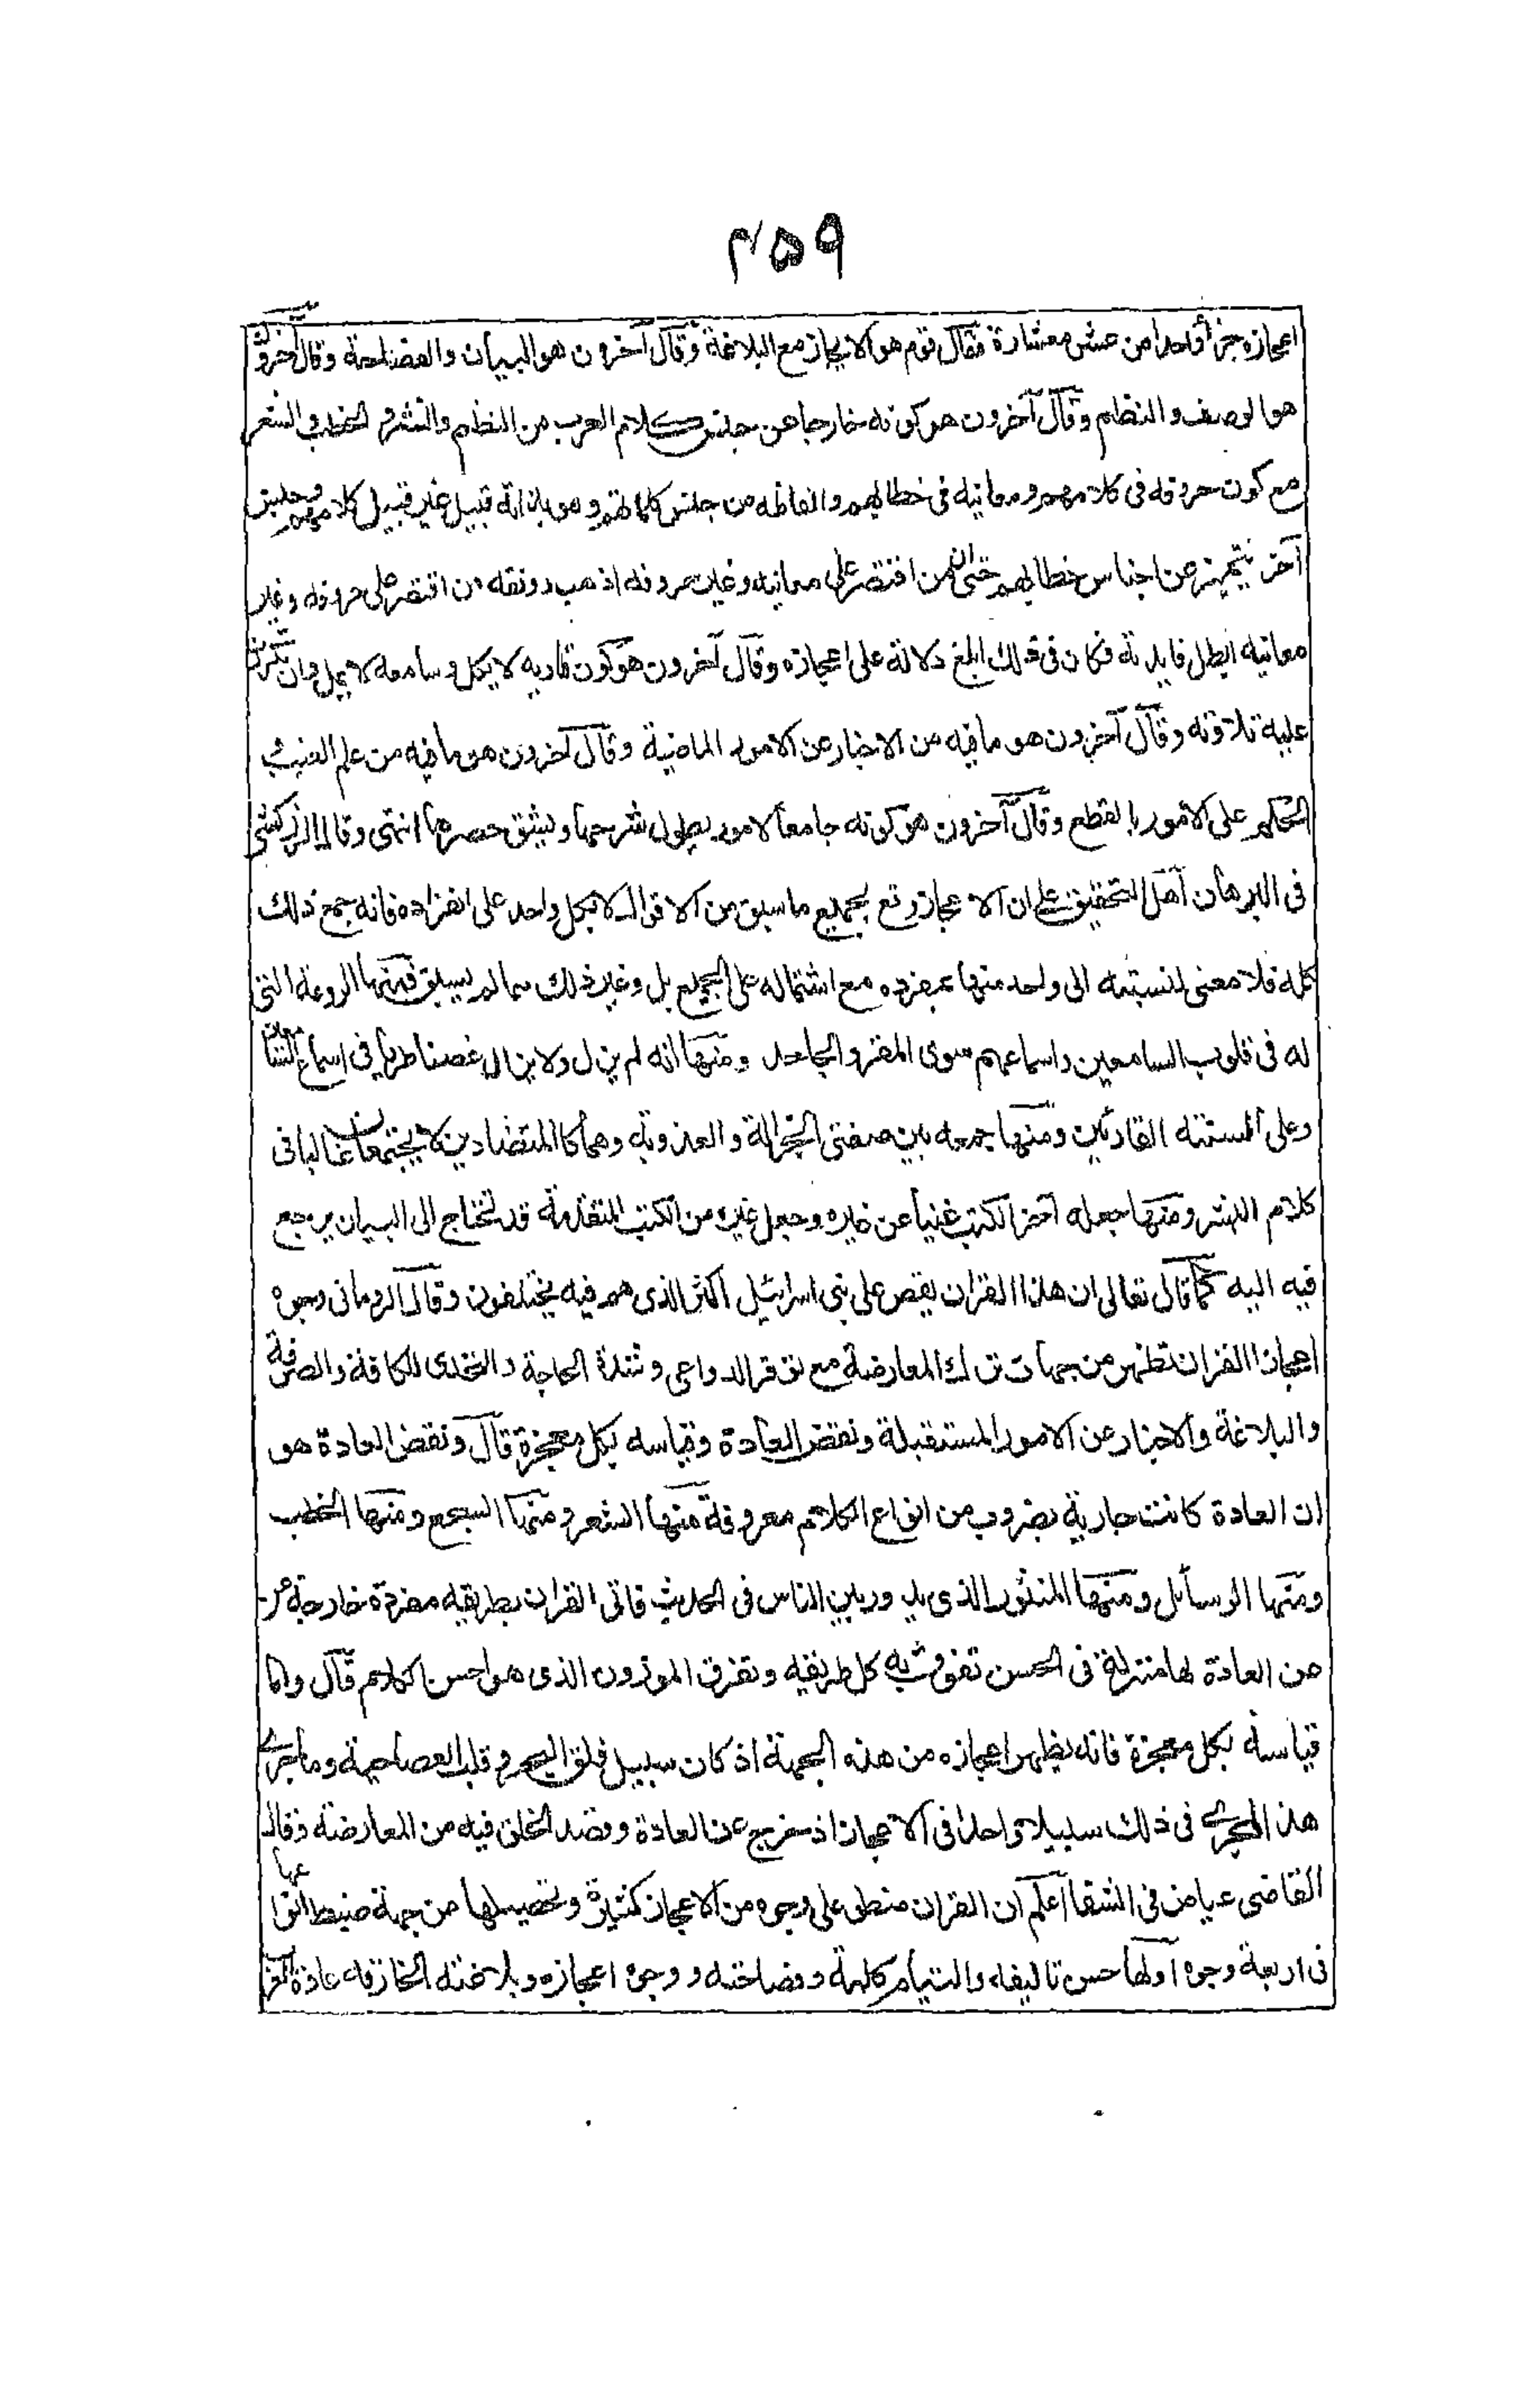 ۴۵۹
اعجازه جزأ واحدا من عشر معشارة فقال قوم هو الايجاز مع البلاغة وقال آخرون هو البيان والفصاحة وقال آخرون
هو الوصف والنظم وقال آخرون هو كونه خارجا عن جنس كلام العرب من النظم والنثر و الخطب والشعر
مع كون حروفه فى كلامهم ومعانيه فى خطابهم والفاظه من جنس كلماتهم وهو بذاته قبيل غير قبيل كلامهم وجنس
آخر يتميز عن اجناس خطابهم حتى ان من اقتصر على معانيه وغير حروفه اذهب رونقه من اقتصر على حروفه وغير
معانيه ابطل فايدته فكان فى ذلك ابلغ دلالة على اعجازه وقال آخرون هو كون قاريه لا يكل وسامعه لا يمل وان تكررت
عليه تلاوته وقال آخرون هو ما فيه من الاخبار عن الامور الماضية وقال آخرون هو ما فيه من علم الغيب و
الحكم على الامور بالقطع وقال آخرون هو كونه جامعا لامور يطول شرحها ويشق حصرها انتهى وقال الزركشى
فى البرهان اهل التحقيق على ان الاعجاز وقع بجميع ما سبق من الاقوال لا بكل واحد على انفراده فانه جمع ذلك
كله فلا معنى لنسبته الى واحد منها بمفرده مع اشتماله على الجميع بل وغير ذلك مما لم يسبق فمنها الروعة التى
له فى قلوب السامعين واسماعهم سوى المقر والجاحد ومنها انه لم يزل ولا يزال غضا طريا فى اسماع السامعين
وعلى السنته القارئين ومنها جمعه بين صفتى الجزالة والعذوبة وهما كالمتضادين لا يجتمعان غالبا فى
كلام البشر ومنها جعله آخر الكتب غنيا عن غيره وجعل غيره من الكتب المتقدمة قد تحتاج الى البيان يرجع
فيه اليه كما قال تعالى ان هذا القران يقص على بنى اسرائيل اكثر الذى هم فيه يختلفون وقال الرمانى وجوه
اعجاز القران تظهر من جهات ترك المعارضة مع توفر الدواعى وشدة الحاجة والتحدى للكافة والصرفة
والبلاغة والاخبار عن الامور المستقبلة ونقض العادة وقياسه بكل معجزة قال ونقض العادة هو
ان العادة كانت جارية بضروب من انواع الكلام معروفة منها الشعر ومنها السجع ومنها الخطب
ومنها الرسائل ومنها المنثور الذى يدور بين الناس فى الحديث فاتى القران بطريقه مفردة خارجة عن
من العادة لها منزلة فى الحسن تفوق به كل طريقه وتفوق الموزون الذى هو احسن الكلام قال واما
قياسه بكل معجزة فانه يظهر اعجازه من هذه الجهة اذ كان سبيل فلق البحر و قلب العصا حية وما جرى
هذا المجرى فى ذلك سبيلا واحدا فى الاعجاز اذ خرج عن العادة وقصد الخلق فيه من المعارضة وقال
القاضى عياض فى الشفا اعلم ان القران منطو على وجوه من الاعجاز كثيرة وتحصيلها من جهة ضبط انواعها
فى اربعة وجوه اولها حسن تاليفه والتيام كلمة وفصاحته ووجوه اعجازه وبلاغته الخارقه عادة العرب